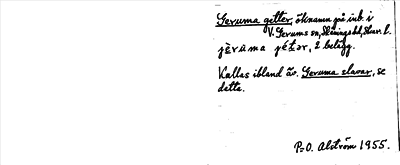 Geruma getter, öknamn på inb. i
V. Gerums sn, Skånings hd, Skar. l.
jèrùma jétər, 2 belägg.
Kallas ibland äv. Geruma slavar, se
detta.
P-O. Alström 1955.